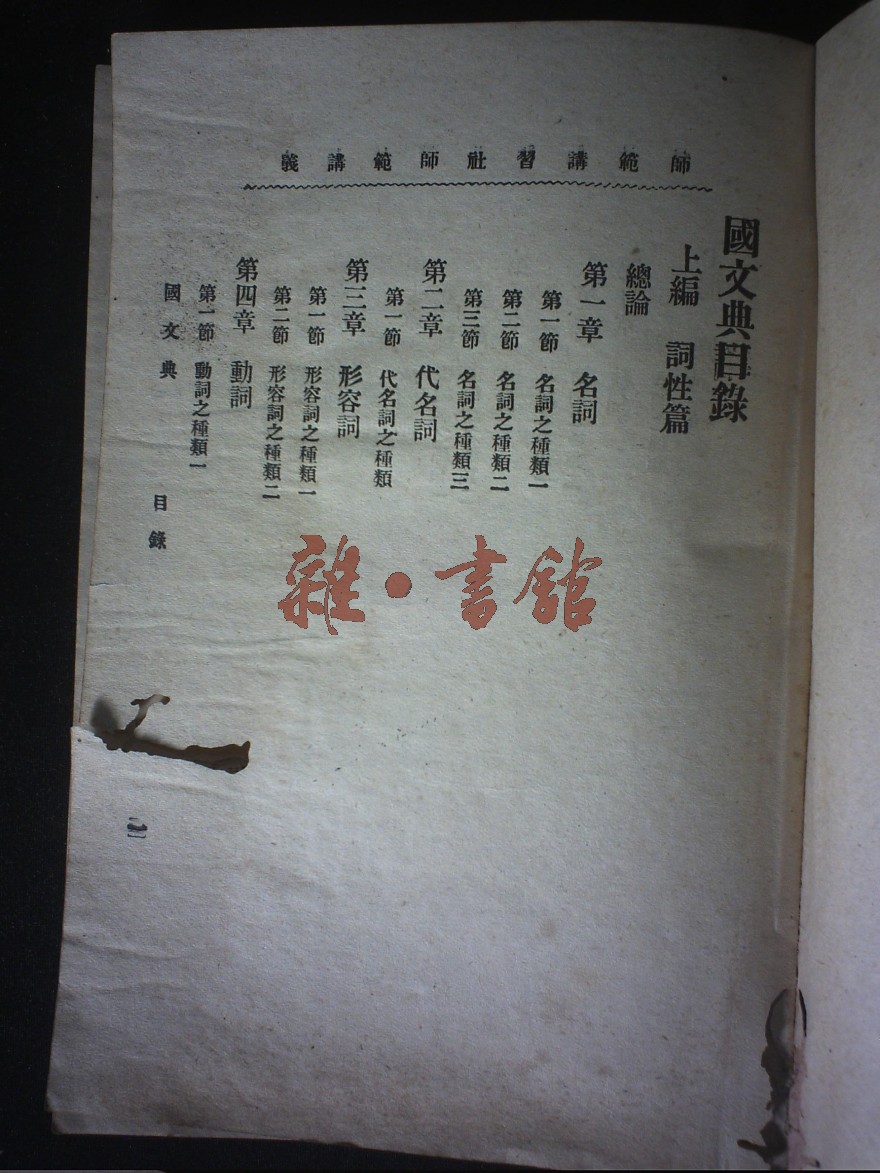 師範講習社師範講義
國文典目錄
上編 詞性篇
總論
第一章 名詞
第一節 名詞之種類一
第二節 名詞之種類二
第三節 名詞之種類三
第二章 代名詞
第一節 代名詞之種類
第三章 形容詞
第一節 形容詞之種類一
第二節 形容詞之種類二
第四章 動詞
第一節 動詞之種類一
國文典 目錄
雜·書館